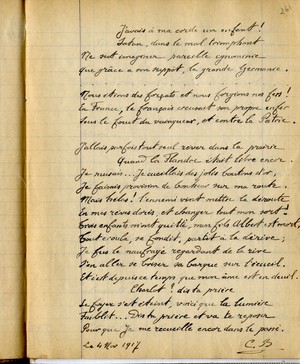 J'avais à ma corde un enfant !
Satan, dans le mal triomphant
Ne sut imaginer pareille ignominie
que grâce à son suppôt, la grande Germanie.
Nous étions des forçats et nous forgions nos fers !
La France, le français creusait son propre enfer
Sous le fouet du vainqueur, et contre la Patrie.
J'allais parfois tout seul rêver dans la prairie
Quand la Flandre était libre encor.
Je musais... Je cueillais des jolis boutons d'or,
Je faisais provision de bonheur sur ma route.
Mais hélas ! l'ennemi vint mettre la déroute
En mes rêves dorés, et changer tout mon sort !
Trois enfants m'ont quitté, mon fils Albert est mort,
Tout croula, se fondit, partit à la dérive ;
Je fus le naufragé regardant de la rive
S'en aller se briser sa barque sur l'écueil.
Et c'est depuis ce temps que mon âme est en deuil.
Charlot ! dis ta prière
Le foyer s'est éteint, voici que la lumière
Faiblit... Dis ta prière et va te reposer
Pour que je me recueille encor dans le passé.
Le 4 Nov 1917
C. B